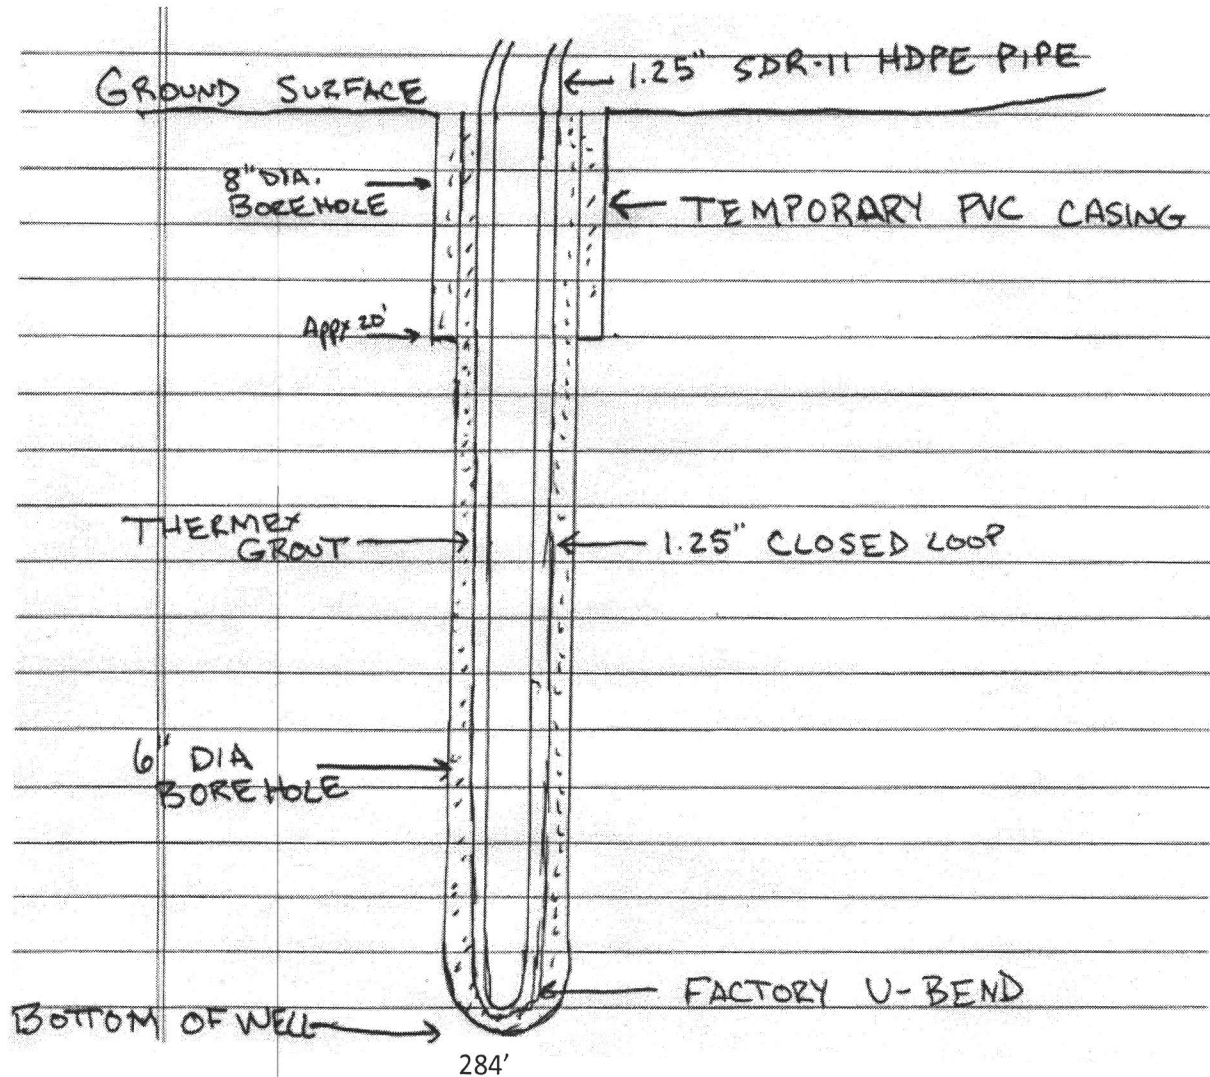 1.25" SDR-11 HDPE PIPE
GROUND SURFACE
8" DIA.
BOREHOLE
TEMPORARY PVC CASING
Appx 20'
THERMEX
GROUT
1.25" CLOSED LOOP
6" DIA
BOREHOLE
FACTORY U-BEND
BOTTOM OF WELL
284'